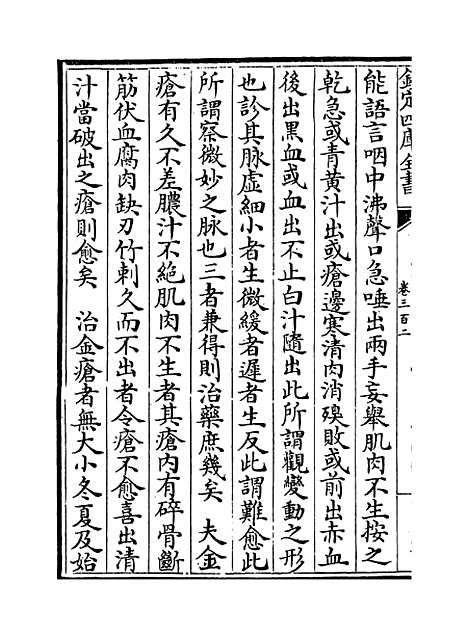 欽定四庫全書
卷三百二
能語言咽中沸聲口急唾出兩手妄舉肌肉不生按之
乾急或青黃汁出或瘡邊寒清肉消臭敗或前出赤血
後出黑血或血出不止白汁隨出此所謂觀變動之形
也診其脉虛細小者生微緩者遲者生反此謂難愈此
所謂察微妙之脉也三者兼得則治藥庶幾矣　夫金
瘡有久不差膿汁不絕肌肉不生者其瘡內有碎骨斷
筋伏血腐肉缺刃竹刺久而不出者令瘡不愈喜出清
汁當破出之瘡則愈矣　治金瘡者無大小冬夏及始